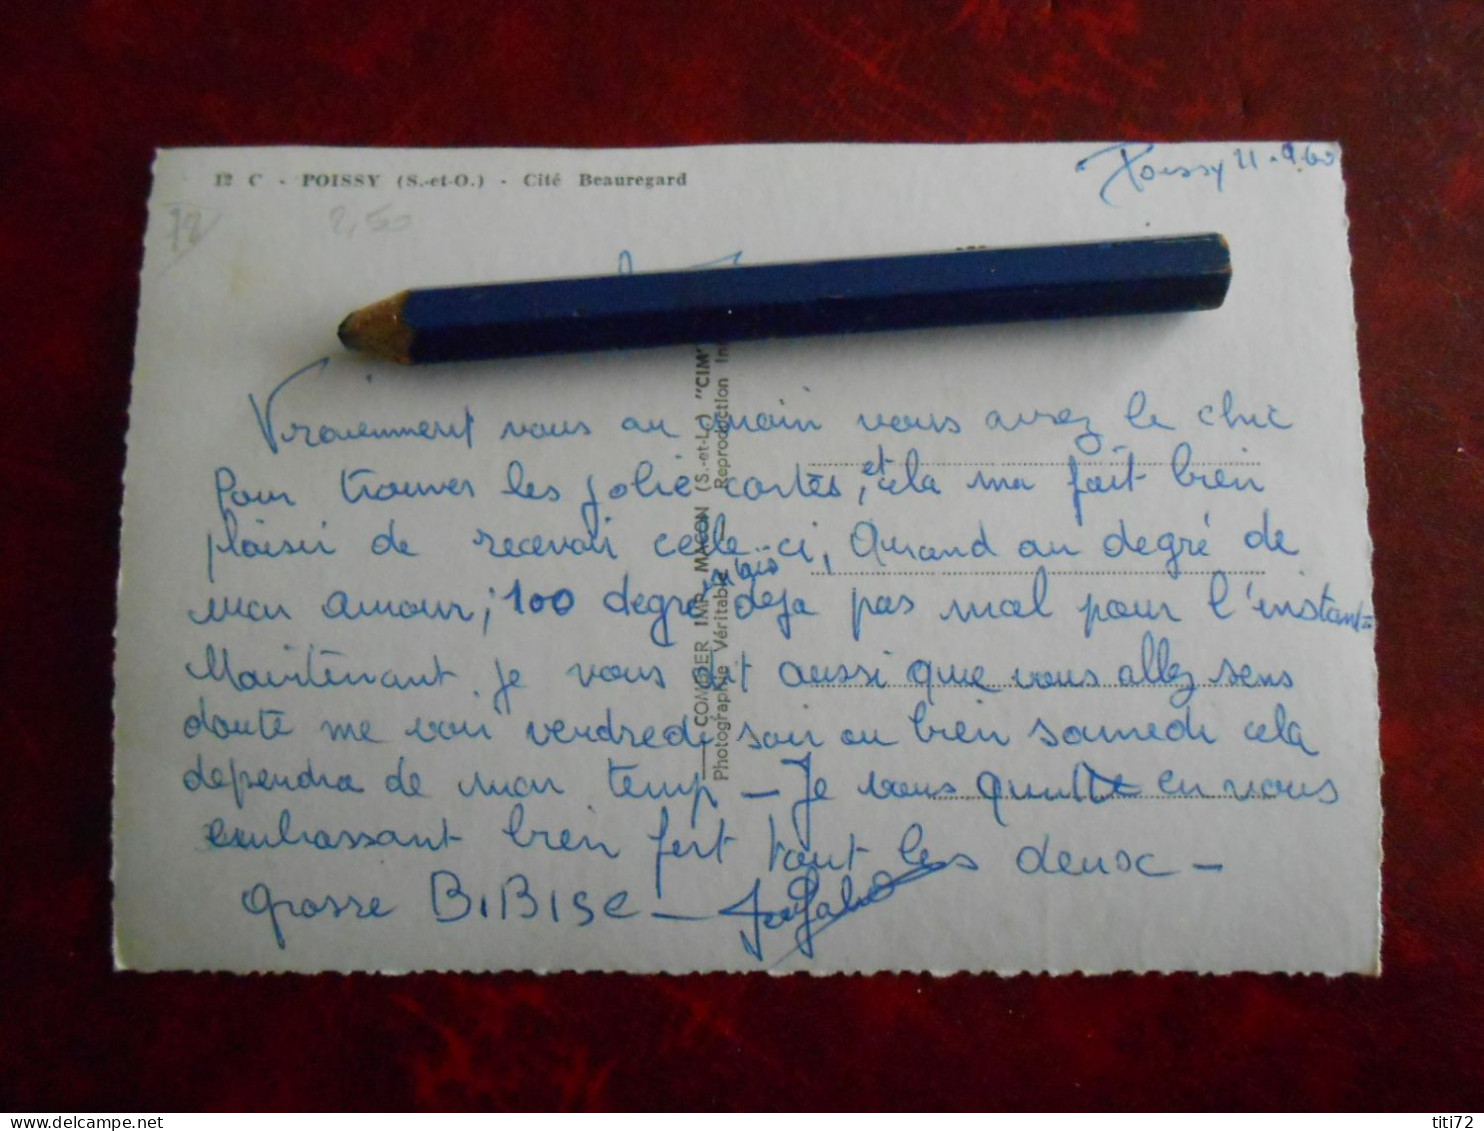 12 C - POISSY (S.-et-O.) - Cité Beauregard
Poissy 21-9.60
12
2,50
Vraiemment vous au moin vous avez le chic
Pour trouver les jolie cartes, et cela ma fait bien
plaisir de recevoir celle-ci, Quand au degré de
mon amour; 100 degré mais deja pas mal pour l'instant-
Maintenant je vous dit aussi que vous allez sens
doute me voir vendredi soir ou bien samedi cela
dependra de mon temp - Je vous quitte en vous
embrassant bien fort tout les deux -
grosse BIBISE -
COMBIER IMP. MACON (S.-et-L.) "CIM"
Photographie Véritable Reproduction In
titi72